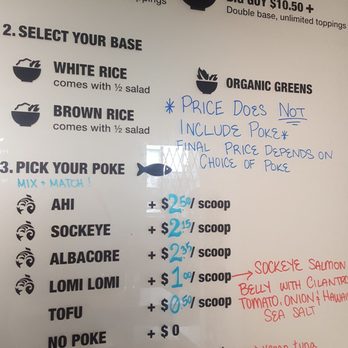 toppings
BIG GUY $10.50 +
Double base, unlimited toppings
2. SELECT YOUR BASE
WHITE RICE
comes with ½ salad
ORGANIC GREENS
BROWN RICE
comes with ½ salad
* PRICE DOES NOT
INCLUDE POKE*
FINAL PRICE DEPENDS ON
CHOICE OF POKE
3. PICK YOUR POKE
MIX + MATCH!
AHI + $2.50/ scoop
SOCKEYE + $2.15/ scoop
ALBACORE + $2.35/ scoop
LOMI LOMI + $1.00/ scoop
SOCKEYE SALMON
BELLY WITH CILANTRO
TOMATO, ONION &
SEA SALT
TOFU + $0.50/ scoop
NO POKE + $0
tuna